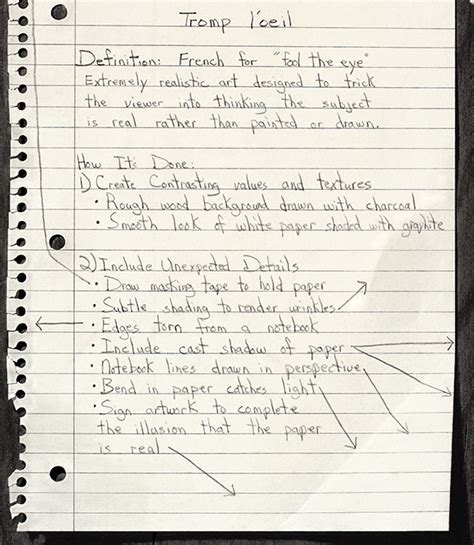 Tromp l'oeil
Definition: French for "fool the eye"
Extremely realistic art designed to trick
the viewer into thinking the subject
is real rather than painted or drawn.
How It's Done:
1) Create Contrasting values and textures
• Rough wood background drawn with charcoal
• Smooth look of white paper shaded with graphite
2) Include Unexpected Details
• Draw masking tape to hold paper
• Subtle shading to render wrinkles
• Edges torn from a notebook
• Include cast shadow of paper
• Notebook lines drawn in perspective
• Bend in paper catches light
• Sign artwork to complete
the illusion that the paper
is real